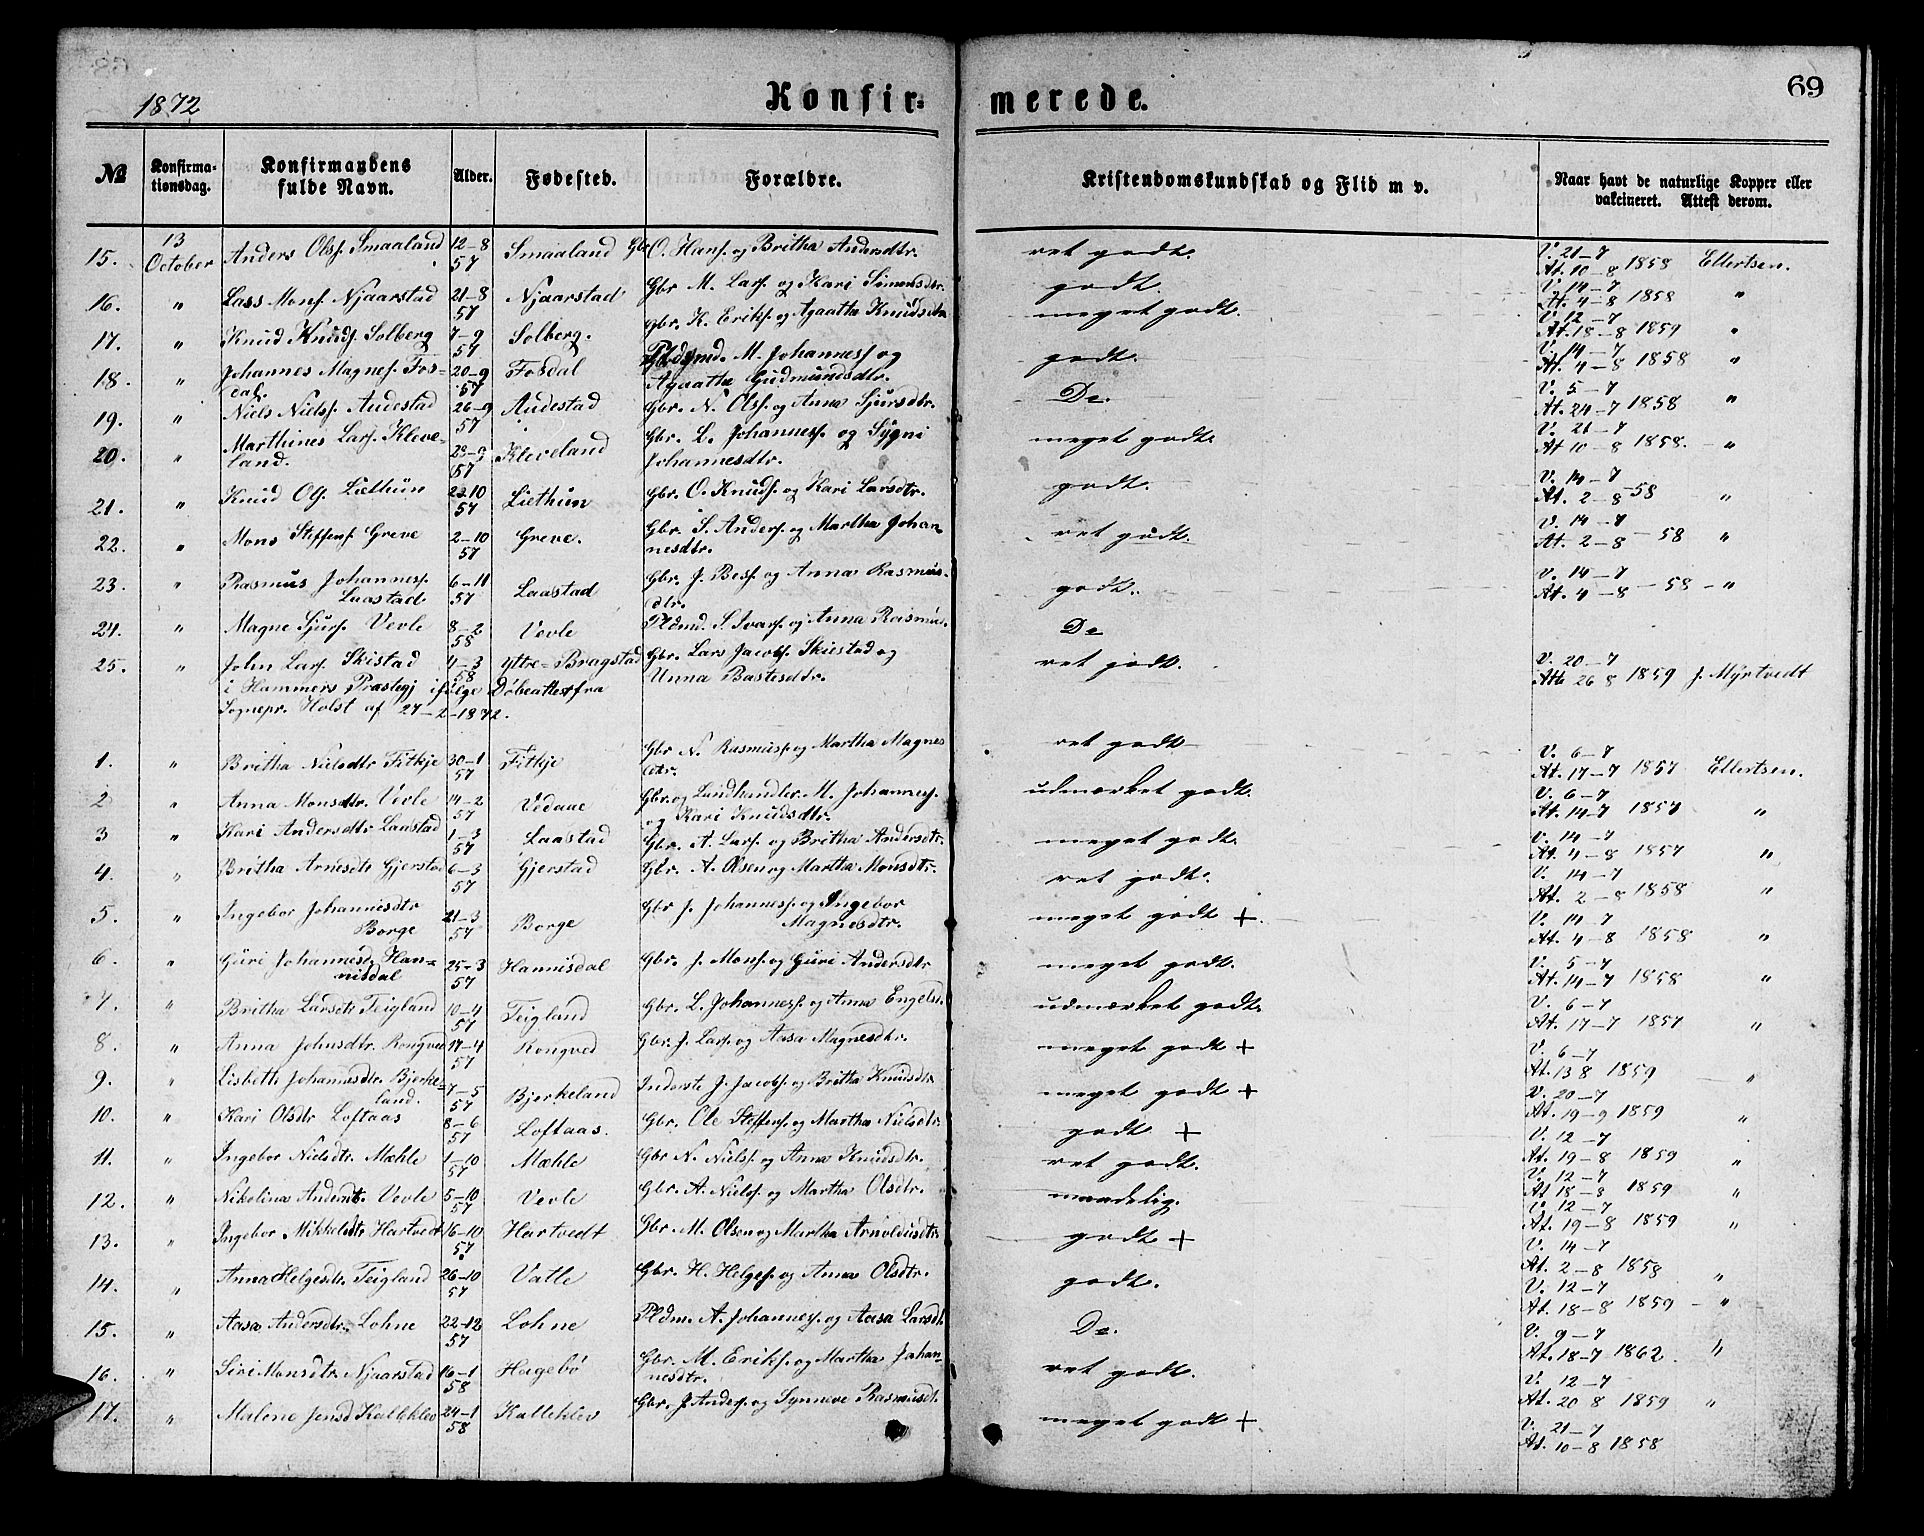 69
1872 Konfirmerede.
№ Konfirmationsdag. Konfirmandens fulde Navn. Alder. Fødested. Forældre. Kristendomskundskab og Flid m v. Naar havt de naturlige Kopper eller vakcineret. Attest derom.
15. 13 October Anders Olss. Smaaland 12-8 57 Smaaland Gbr. O. Hans. og Britha Andersdtr. ret godt. V. 21-7 At. 10-8 1858 Ellertsen.
16. " Lass Mons. Njaarstad 21-8 57 Njaarstad Gbr M. Lars. og Kari Simonsdtr. godt. V. 14-7 At. 4-8 1858 "
17. " Knud Knuds. Solberg 7-9 57 Solberg. Gbr. K. Eriks. og Agaatha Knudsdtr. meget godt. V. 12-7 At. 18-8 1859 "
18. " Johannes Magnes. Fosdal. 20-9 57 Fosdal Pldsmd. M. Johannes. og Agaatha Gudmundsdtr. godt. V. 14-7 At. 4-8 1858 "
19. " Niels Niels. Audestad 26-9 57 Audestad Gbr. N. Olss. og Anna Sjursdtr. Do. V. 5-7 At. 24-7 1858 "
20. " Marthines Lars. Kleveland. 57 Kleveland Gbr. L. Johannes. og Sygni Johannesdtr. meget godt. V. 21-7 At 10-8 1858. "
21. " Knud Ols. Liethun 57 Liethun Gbr. O. Knuds. og Kari Larsdtr. godt. V. 14-7 At. 2-8 58 "
22. " Mons Steffens. Greve 2-10 57 Greve. Gbr. S. Anders. og Martha Johannesdtr. ret godt. V. 14-7 At. 2-8 - 58 "
23. " Rasmus Johannes. Laastad 6-11 57 Laastad Gbr. J. Bess. og Anna Rasmusdtr. godt. V. 14-7 At. 4-8 - 58 - "
24. " Magne Sjurs. Vevle 8-2 58 Vevle Pldmd. S. Ivars. og Anna Rasmus. Do
25. " John Lars. Skistad 4-3 58 Yttre-Bragstad Gbr. Lars Jacobs. Skistad og Unna Bastesdtr. ret godt. V. 20-7 Att. 26 8 1859 J. Myrtvedt
i Hammers Præstegj ifølge Døbeattest fra
Sognepr. Holst af 27-2-1872.
1. " Britha Nielsdtr Fitkje 30-1 57 Fitkje Gbr N. Rasmuss. og Martha Magnesdtr. ret godt V. 6-7 At. 17-7 1857 Ellertsen.
2 " Anna Monsdtr. Vevle 14-2 57 Vedaae Gbr. og Landhandler M. Johannes. og Kari Knudsdtr. udmærket godt. V. 6-7 At. 14-7 1857 "
3 " Kari Andersdtr Laastad 1-3 57 Laastad Gbr. A. Lars. og Britha Andersdtr. meget godt. V. 14-7 At. 4-8 1857 "
4. " Britha Arnesdtr Gjerstad 6-3 57 Gjerstad Gbr. A. Olsen og Martha Monsdtr. ret godt. V. 14-7 At. 2-8 1858 "
5. " Ingebor Johannesdtr Borge 21-3 57 Borge Gbr J. Johannes. og Ingebor Magnesdtr. meget godt +. V. 14-7 At. 4-8 1858 "
6. " Guri Johannesd. Hannisdal 25-3 57 Hannisdal Gbr. J. Mons. og Guri Andersdtr meget godt. V. 5-7 At. 14-7 1858 "
7. " Britha Larsdtr Teigland 10-4 57 Teigland Gbr. L. Johannes. og Anna Engelsd. udmærket godt. V. 6-7 At. 17-7 1857 "
8. " Anna Johnsdtr. Rongved 17-4 57 Rongved Gbr. J. Lars. og Aasa Magnesdtr. meget godt + V. 6-7 At. 13 8 1859 "
9. " Lisbeth Johannesdtr. Bjerkeland. 7-5 57 Bjerkeland Inderste J. Jacobs. og Britha Knudsdtr. meget godt + V. 20-7 At. 19-9 1859 "
10. " Kari Olsdtr Loftaas 8-6 57 Loftaas. Gbr. Ole Steffens. og Martha Nielsdtr. godt + V. 12-7 At. 19-8 1859 "
11. " Ingebor Nielsdtr. Mæhle 1-10 57 Mæhle Gbr N. Niels. og Anna Knudsdtr. ret godt. V. 12-7 At 18-8 1859 "
12. " Nikolina Andersdt. Vevle 5-10 57 Vevle Gbr. A. Niels. og Martha Olsdtr. maadelig. V. 12-7 At. 19-8 1859 "
13. " Ingebor Mikkelsdtr Hartvedt 16-10 57 Hartvedt Gbr. M. Olsen og Martha Arnoldusdtr godt + V. 14-7 At. 2-8 1858 "
14. " Anna Helgesdtr. Teigland 26-10 57 Vatle Gbr. H. Helges. og Anna Olsdtr. godt. V. 12-7 At. 18-8 1859 - "
15. " Aasa Andersdtr. Lohne 22-12 57 Lohne Pldm. A. Johannes. og Aasa Larsdt. Do. V. 9-7 At. 18-7 1862. "
16. " Siri Monsdtr. Njaarstad 16-1 58 Hagebø Gbr. M. Eriks. og Martha Johannesdtr. ret godt. V. 12-7 At. 20 8 1859 "
17. " Malene Jensd Kalleklev 24-1 58 Kalleklev Gbr. J. Anders. og Synneve Rasmusdt. meget godt + V. 21-7 At. 10-8 1858